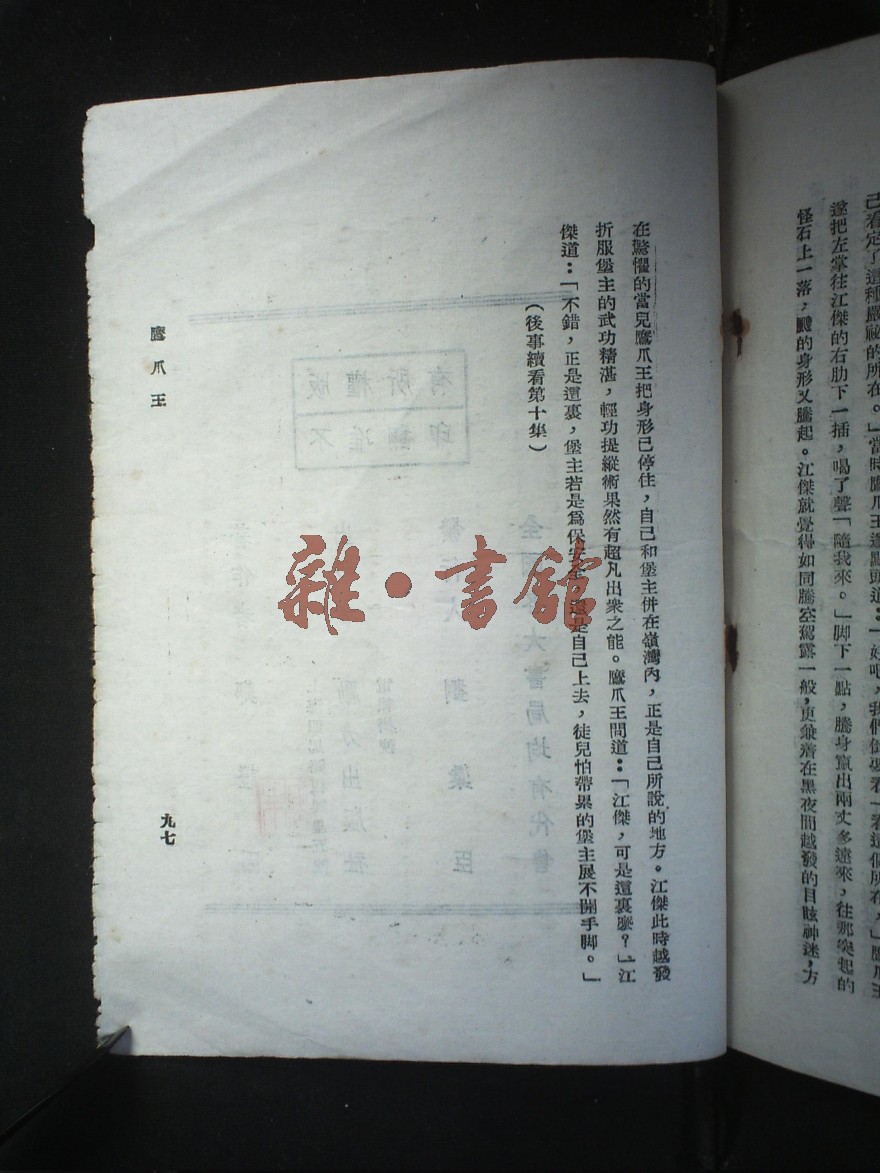 己看定了這種嚴祕的所在。」當時鷹爪王遂點頭道：「好吧，我們倒要看一看這個所在，」鷹爪王
遂把左掌往江傑的右肋下一插，喝了聲「隨我來。」脚下一點，騰身竄出兩丈多遠來，往那突起的
怪石上一落，颼的身形又騰起。江傑就覺得如同騰空駕霧一般，更兼着在黑夜間越發的目眩神迷，方
在驚懼的當兒鷹爪王把身形已停住，自己和堡主併在嶺灣內，正是自己所說的地方。江傑此時越發
折服堡主的武功精湛，輕功提縱術果然有超凡出衆之能。鷹爪王問道：「江傑，可是這裏麼？」江
傑道：「不錯，正是這裏，堡主若是爲保安全，還是自己上去，徒兒怕帶累的堡主展不開手脚。」
（後事續看第十集）
鷹爪王
九七
雜·書館
版權所有
不准翻印
全國各大書局均有代售
發行人 劉彙臣